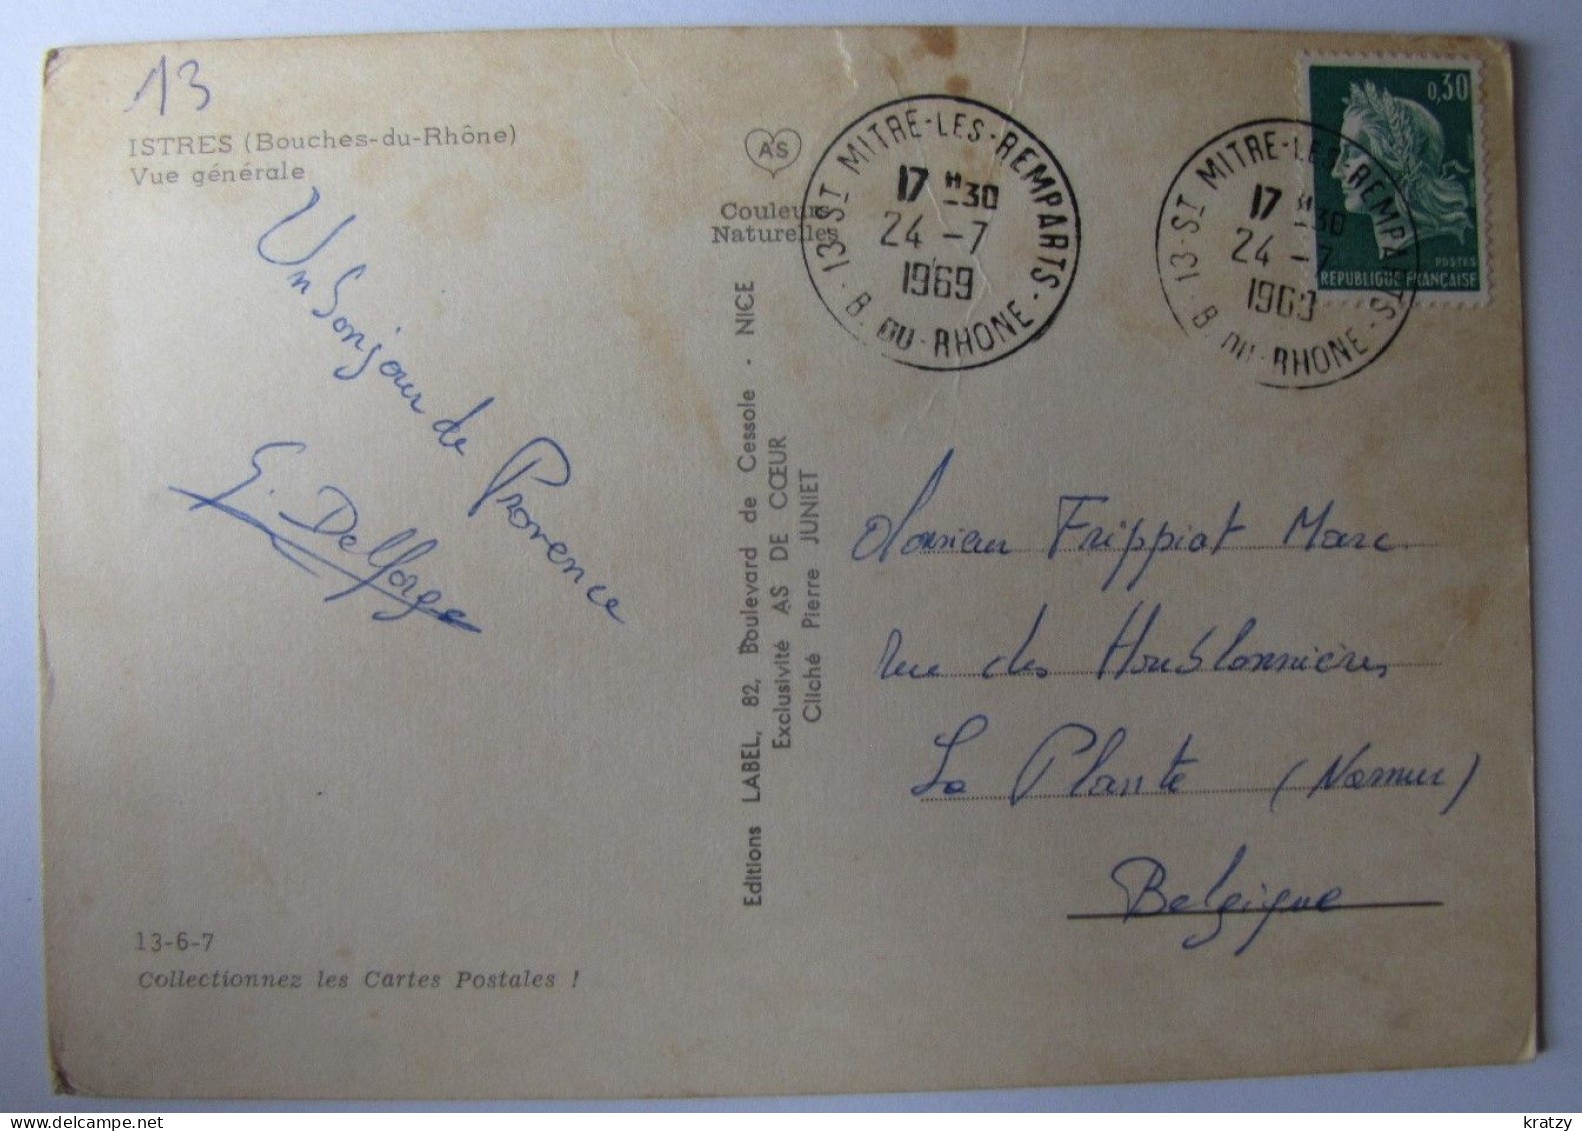 13
ISTRES (Bouches-du-Rhône)
Vue générale
Un bonjour de Provence
G. Delforge
13-6-7
Collectionnez les Cartes Postales !
AS
Couleurs
Naturelles
Editions LABEL, 82, Boulevard de Cessole - NICE
Exclusivité AS DE CŒUR
Cliché Pierre JUNIET
13-ST MITRE-LES-REMPARTS-
17 H-30
24 -7
1969
B. DU-RHONE-
13-ST MITRE-LES-REMPARTS-
17 H-30
24 -7
1969
B. DU-RHONE-
0,30
POSTES
REPUBLIQUE FRANÇAISE
Monsieur Frippiat Marc
rue des Houblonnières
La Plante (Namur)
Belgique
www.delcampe.net
kratzy